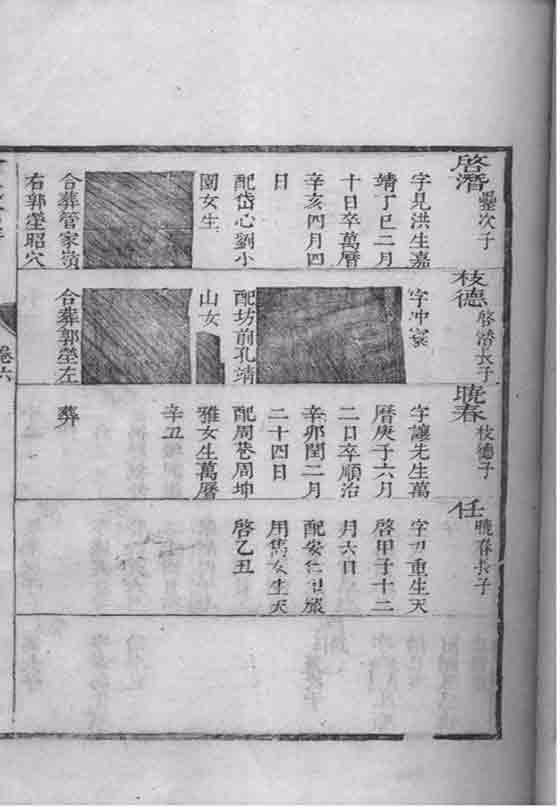 啓潛
曇次子
字見洪生嘉
靖丁巳二月
十日卒萬曆
辛亥四月四
日
配岱心劉小
園女生
合葬管家嶺
右郭塋昭穴
枝德
啓潛長子
字冲寰
配坊前孔靖
山女
合葬郭塋左
曉春
枝德子
字讓先生萬
曆庚子六月
二日卒順治
辛卯閏二月
二十四日
配周巷周坤
雅女生萬曆
辛丑
葬
任
曉春長子
重生天
啓甲子十二
月六日
配安仁
用雋女生天
啓乙丑
卷六